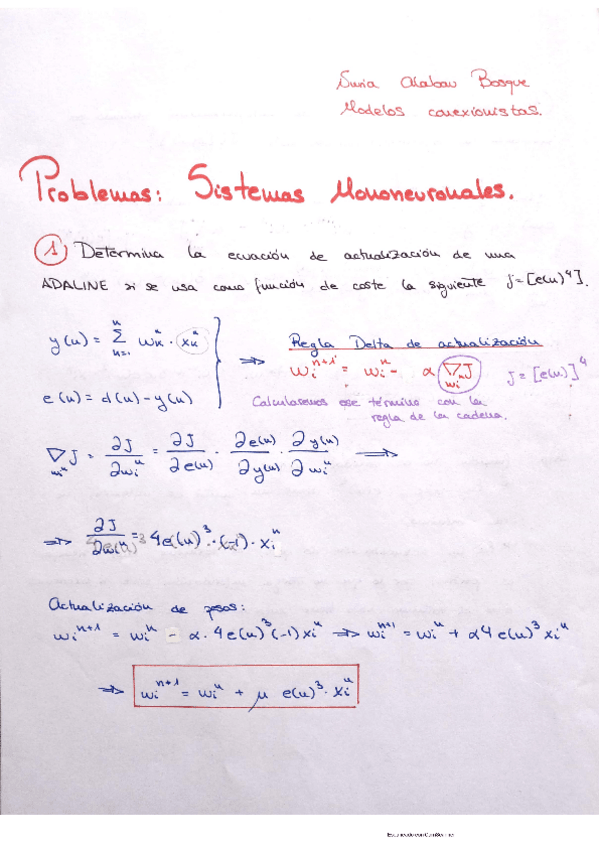 Nuria Alabau Bosque
Modelos conexionistas.
Problemas: Sistemas Mononeuronales.
1 Determina la ecuación de actualización de una
ADALINE si se usa como función de coste la siguiente J=[e(n)^4].
y(n) = Σ_{n=1}^{n} w_k^n · x_k^n
Regla Delta de actualización
w_i^{n+1} = w_i^n - α ∇_{w_i} J J = [e(n)]^4
e(n) = d(n) - y(n)
Calcularemos ese término con la
regla de la cadena.
∇_{w_i^n} J = ∂J/∂w_i^n = ∂J/∂e(n) · ∂e(n)/∂y(n) · ∂y(n)/∂w_i^n ⟶
⇒ ∂J/∂w_i^n = 4e(n)^3 · (-1) · x_i^n
Actualización de pesos:
w_i^{n+1} = w_i^n - α · 4e(n)^3 (-1) x_i^n ⇒ w_i^{n+1} = w_i^n + α4 e(n)^3 x_i^n
⇒ w_i^{n+1} = w_i^n + μ e(n)^3 · x_i^n
Escaneado con CamScanner